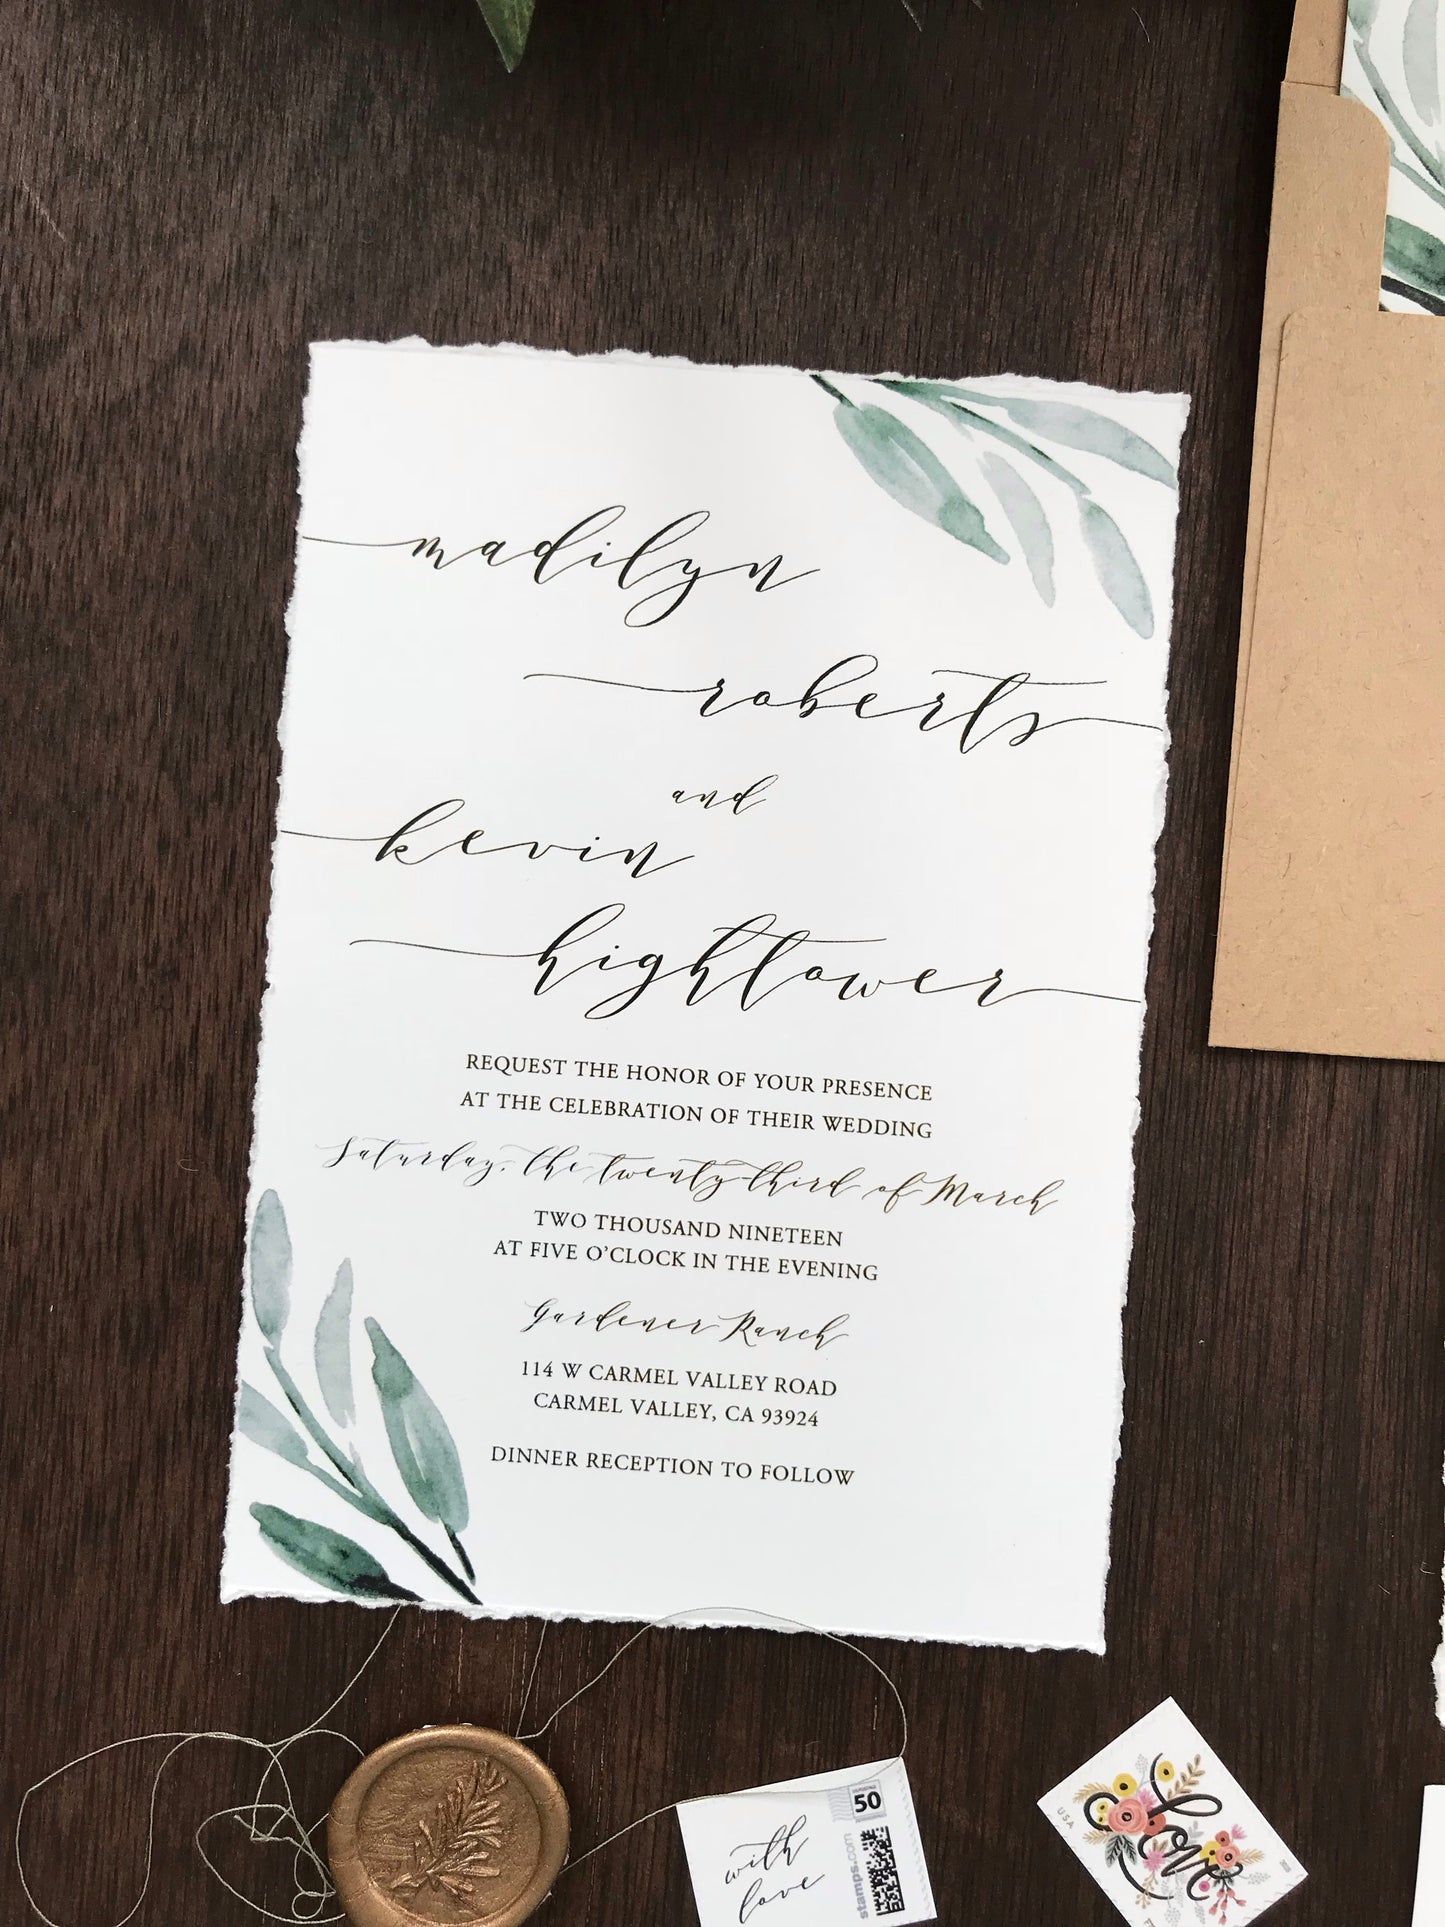 madilyn
roberts
and
kevin
hightower
REQUEST THE HONOR OF YOUR PRESENCE
AT THE CELEBRATION OF THEIR WEDDING
Saturday, the twenty-third of March
TWO THOUSAND NINETEEN
AT FIVE O'CLOCK IN THE EVENING
Gardener Ranch
114 W CARMEL VALLEY ROAD
CARMEL VALLEY, CA 93924
DINNER RECEPTION TO FOLLOW
with
love
50
stamps.com
USA
love